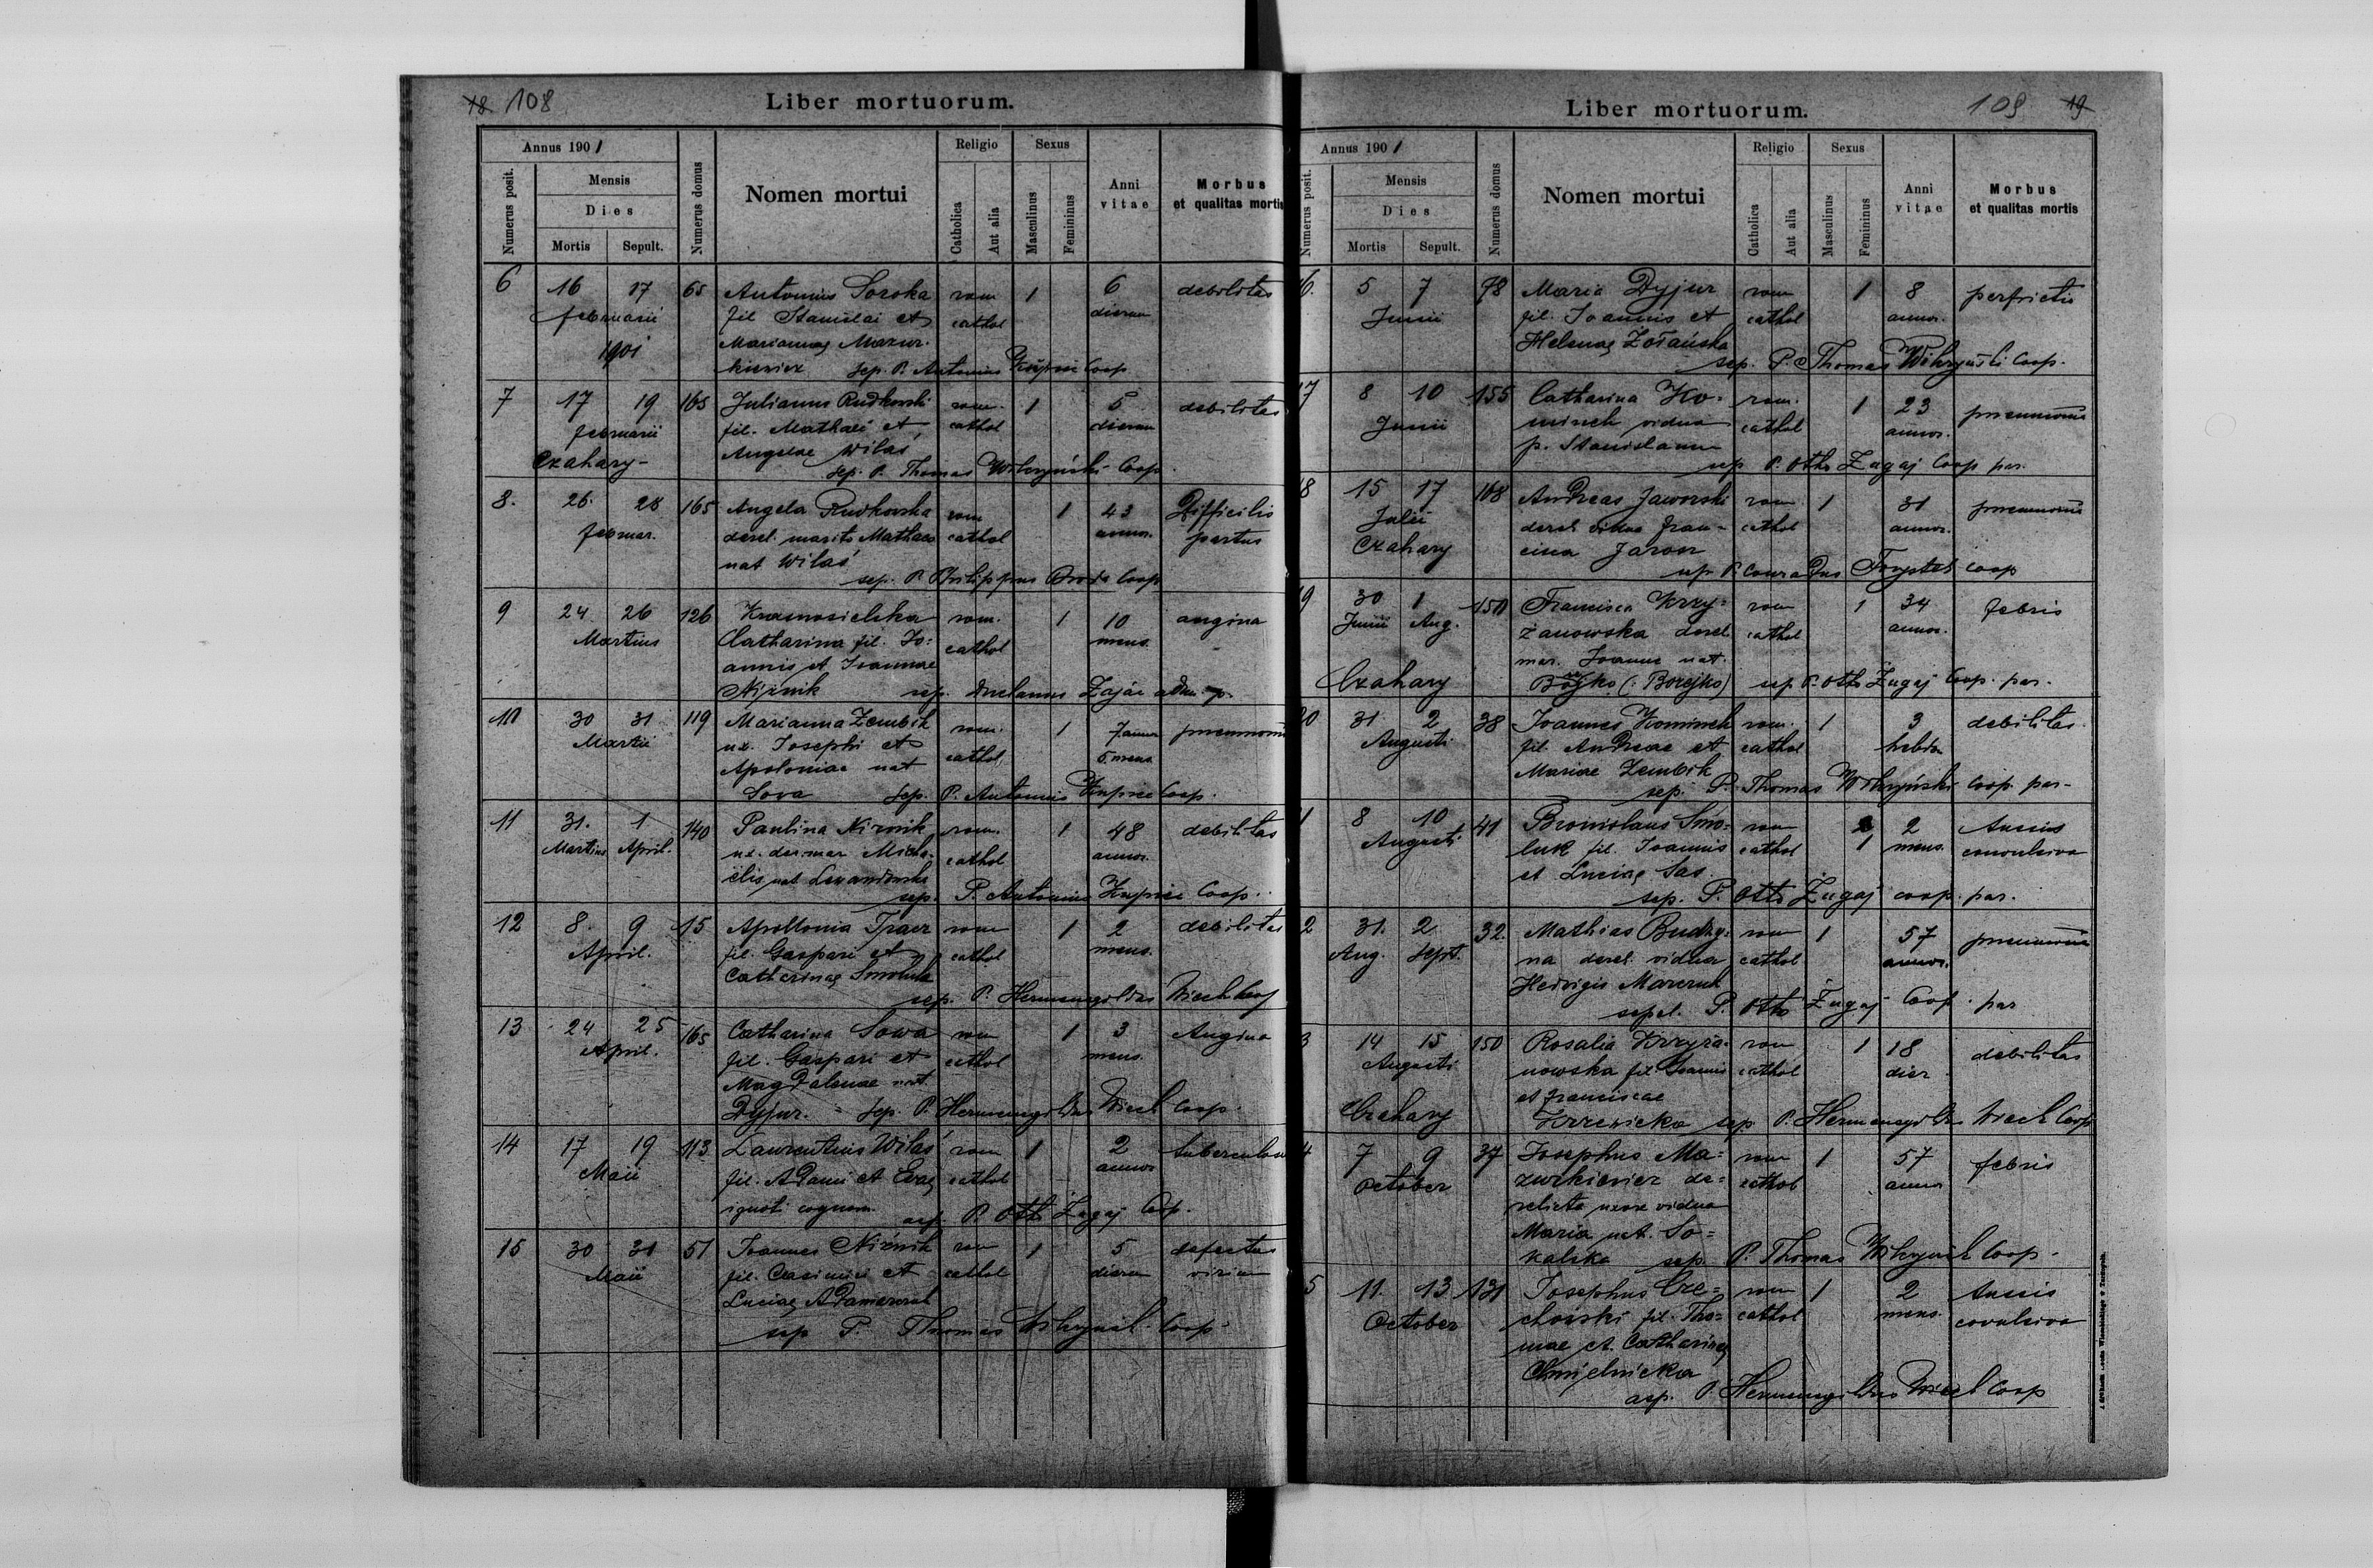 18 108
Liber mortuorum.
Annus 1901
Numerus posit.
Mensis
Dies
Mortis Sepult.
Numerus domus
Nomen mortui
Religio
Catholica
Aut alia
Sexus
Masculinus
Femininus
Anni vitae
Morbus
et qualitas mortis
6 16 17 65 Antonius Soroka rom 1 6 debilitas
februarii fil Stanislai et cathol dierum
1901 Mariannae Mazur-
kiewicz sep. P. Antonius Coop
7 17 19 165 Julianus Rudkowski rom. 1 5 debilitas
februarii fil. Mathaei et cathol dierum
Czahary- Angelae Wilaś
sep. P. Thomas Wilczyński Coop.
8. 26. 28 165 Angela Rudkowska rom 1 43 Difficilis
februar. derel. marito Mathaeo cathol annor. partus
nat Wilaś
sep. P. Philippus Coop
9 24 26 126 Krasnosielska rom. 1 10 angina
Martius Catharina fil. Jo: cathol mens.
annis et Joannae
Niżnik sep. Zając adm. p.
10 30 31 119 Marianna Zembik rom. 1 7 annor pneumonia
Martii ux. Josephi et cathol 5 mens
Apoloniae nat
Sova sep. P. Antonius Coop.
11 31. 1 140 Paulina Niznik rom. 1 48 debilitas
Martius April. ux. der. mar Micha- cathol annor.
ëlis nat Lewandowska
sep. P. Antonius Coop.
12 8. 9 15 Apollonia Tracz rom 1 2 debilitas
April. fil. Gaspari et cathol mens.
Catharinae Smoluk
sep. P. Hermenegildus Wiech Coop
13 24 25 165 Catharina Sowa rom 1 3 Angina
April. fil. Gaspari et cathol mens.
Magdalenae nat.
Dyjur. - sep. P. Hermenegildus Wiech Coop.
14 17 19 113 Laurentius Wilaś rom 1 2 tuberculosa
Maii fil. Adami et Evae cathol annor
ignoti cognom. sep P. Otto Żugaj Coop.
15 30 31 51 Joannes Niżnik rom 1 5 defectus
Maii fil. Casimiri et cathol dierum virium
Luciae Adamczuk
sep P. Thomas Wilczyńsk. Coop
109 19
Liber mortuorum.
Annus 1901
Numerus posit.
Mensis
Dies
Mortis Sepult.
Numerus domus
Nomen mortui
Religio
Catholica
Aut alia
Sexus
Masculinus
Femininus
Anni vitae
Morbus
et qualitas mortis
6. 5 7 78 Maria Dyjur rom 1 8 perfrictio
Junii fil. Joannis et cathol annor.
Helenae Żołańska
sep. P. Thomas Wilczyński Coop.
17 8 10 155 Catharina Ko- rom. 1 23 pneumonia
Junii minek vidua cathol annor.
p. Stanislaum
sep P. Otto Żugaj Coop par.
8 15 17 168 Andreas Jaworski rom 1 31 pneumonia
Julii derel vidua Fran- cathol annor.
Czahary cisca Jaroor
sep P. Conradus Coop
9 30 1 150 Francisca Krzy- rom 1 34 febris
Junii Aug. żanowska derel cathol annor.
mar. Joanne nat.
Czahary Bojko (: Borejko) sep P. Otto Żugaj Coop. par.
20 31 2 38 Joannes Kominek rom. 1 3 debilitas.
Augusti fil. Andreae et cathol hebdo
Mariae Zembik
sep. P. Thomas Wilczyński Coop. par-
1 8 10 41 Bronislaus Smo- rom 2 tussis
Augusti luk fil. Joannis cathol 1 mens convulsiva
et Luciae Sas.
sep. P. Otto Żugaj coop. par.
2 31. 2 32. Mathias Budzy- rom 1 57 pneumonia
Aug. Sept. na derel. vidua cathol annor.
Hedvigis Mazczuk
sepel. P. Otto Żugaj Coop. par
3 14 15 150 Rosalia Krzyża- rom 1 18 debilitas
Augusti nowska fil. Joannis cathol dier
et Franciscae
Czahary sep P. Hermenegildus Wiech Coop
4 7 9 37 Josephus Ma- rom 1 57 febris
October zurkiewicz de- cathol annor
relicta uxore vidua
Maria nat. So-
kalska sep. P. Thomas Wilczyńsk Coop-
5 11. 13 131 Josephus Cze- rom 1 2 tussis
October choński fil. Tho- cathol mens. covulsiva
mae et Catharinae
Chmjelnicka
sep. P. Hermenegildus Wiech Coop